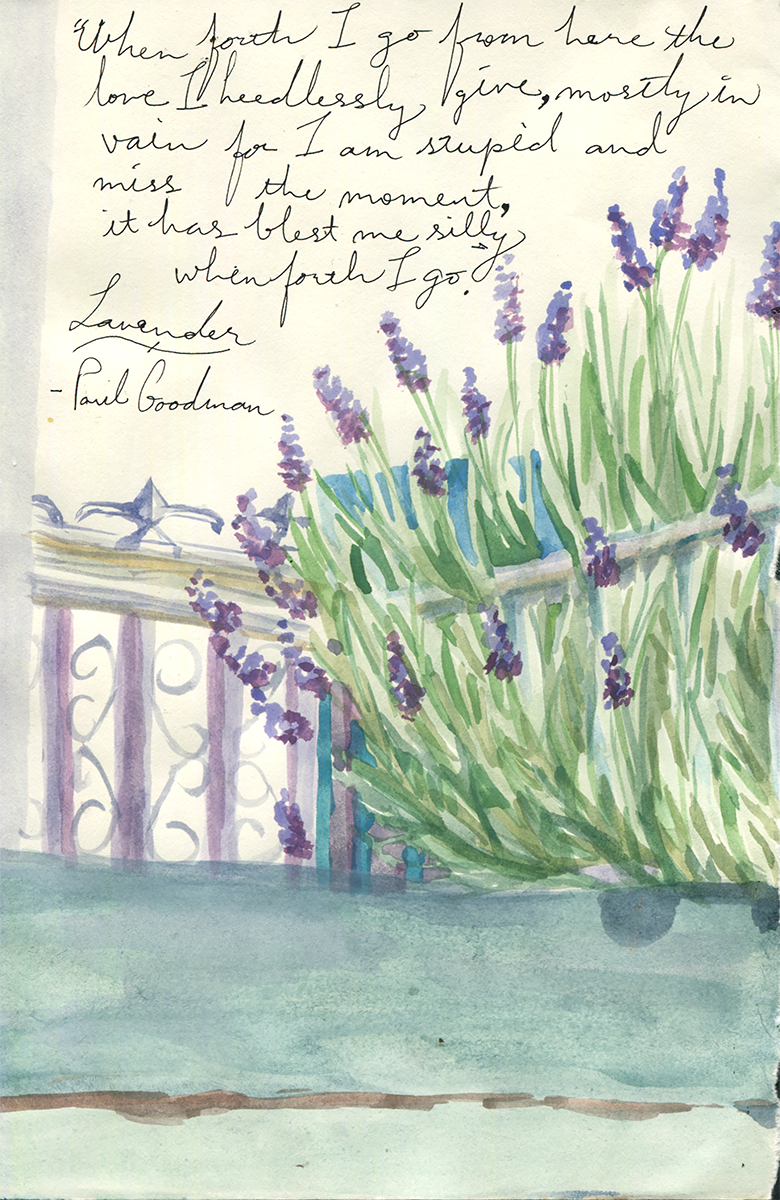 "When forth I go from here the
love I heedlessly give, mostly in
vain for I am stupid and
miss the moment,
it has blest me silly
when forth I go.
Lavender
- Paul Goodman